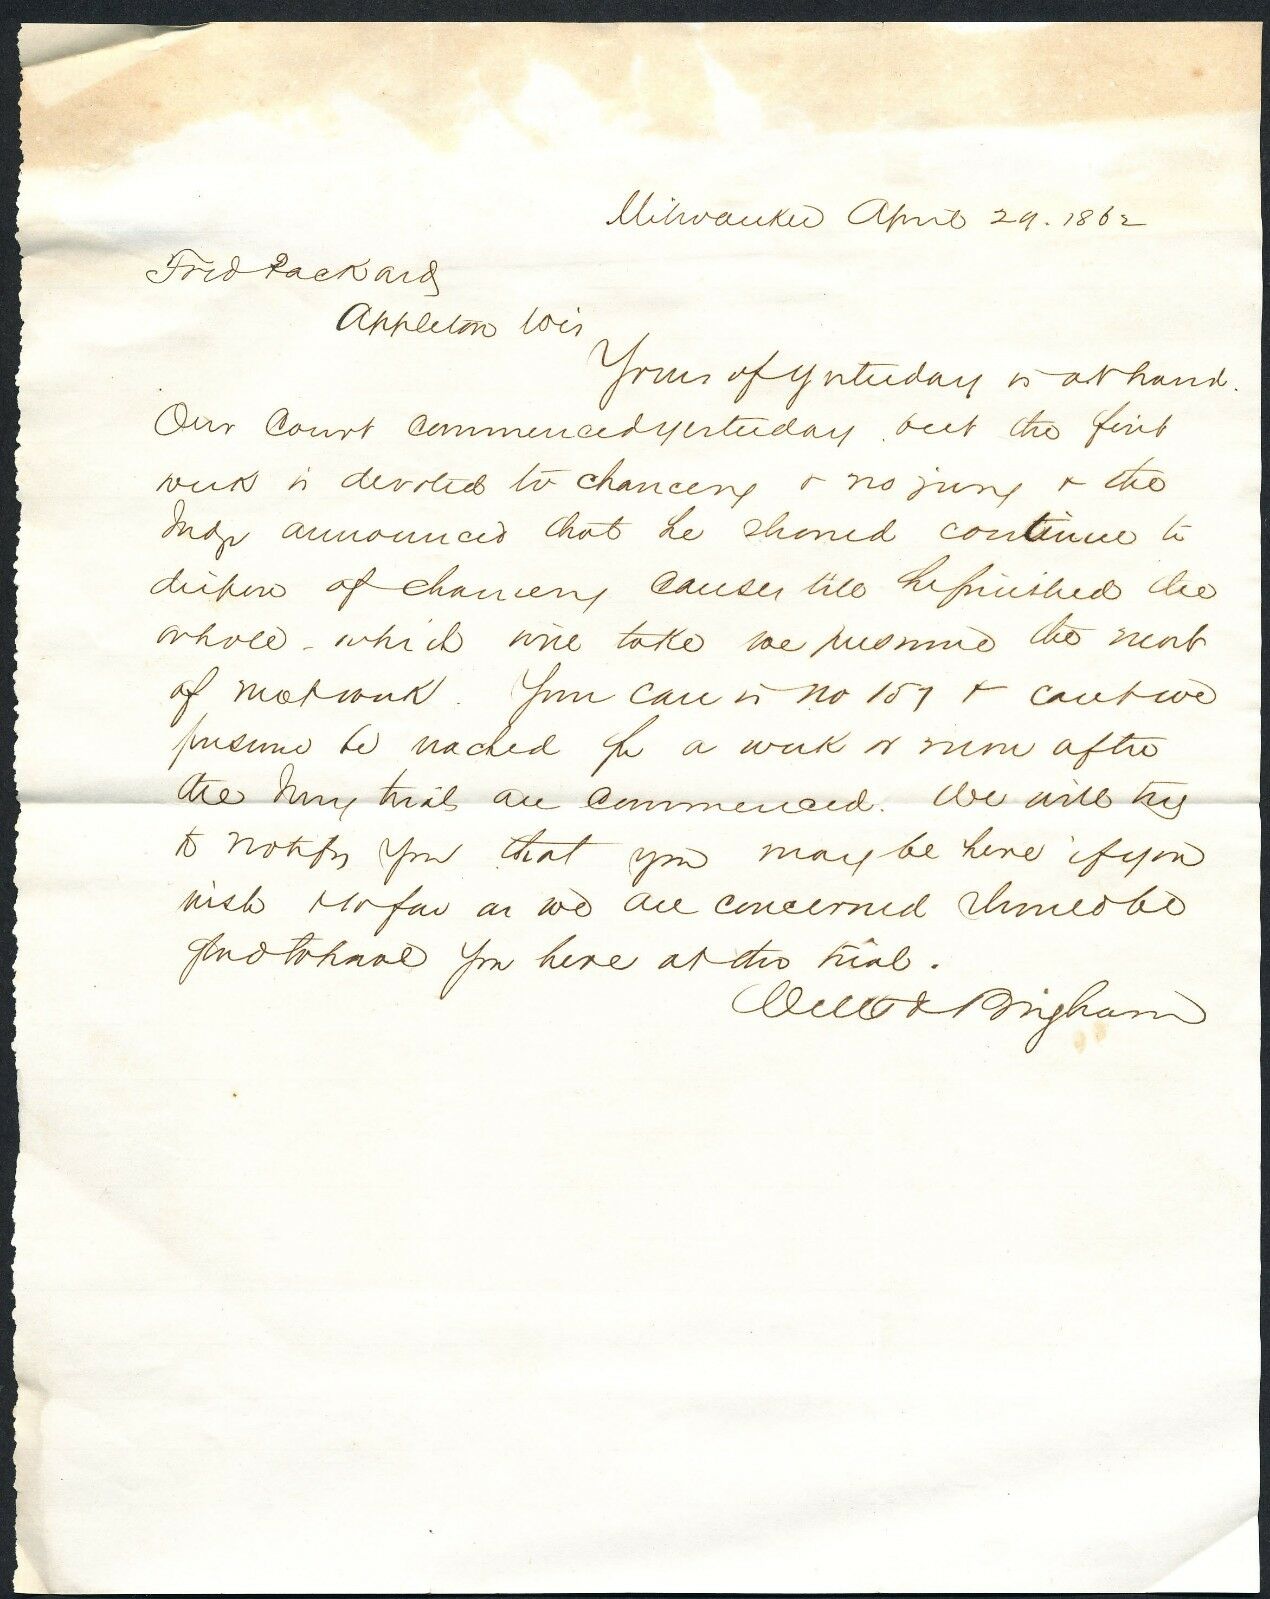 Milwaukee April 29. 1862
Fred Packard
Appleton Wis
Yours of yesterday is at hand.
Our Court commenced yesterday but the first
week is devoted to chancery & no jury & the
Judge announced that he should continue to
dispose of chancery causes till he finished the
whole - which will take we presume the most
of next week. Your case is no 157 & cant we
presume be reached for a week or more after
the Jury trials are commenced. We will try
to notify you that you may be here if you
wish & so far as we are concerned should be
glad to have you here at the trial.
& Bingham